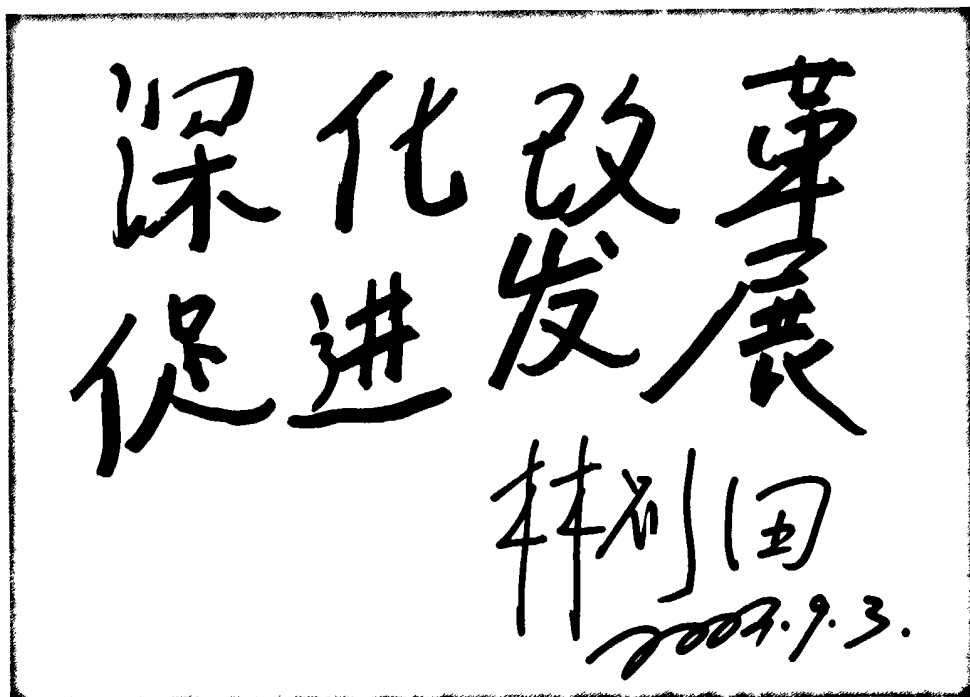 深化改革
促进发展
林
2007.9.3.